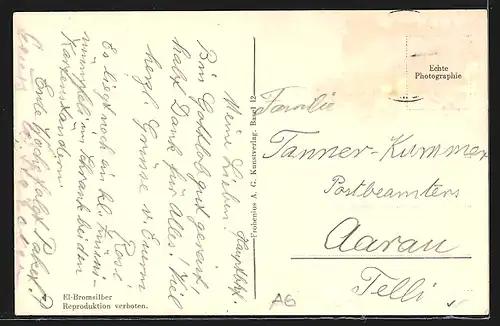 Meine Lieben
Bin Gottlob gut gereist,
habt Dank für Alles! Viel
herzl. Grüsse v. Eurem
Rosi
Es liegt noch ein kl.
im Schrank bei den
Kartenständern
Ende Woche folgt Paket.
El-Bromsilber
Reproduktion verboten.
Frobenius A. G. Kunstverlag. Basel 12
Echte
Photographie
Familie
Tanner-Kummer
Postbeamters
Aarau
Telli
A6